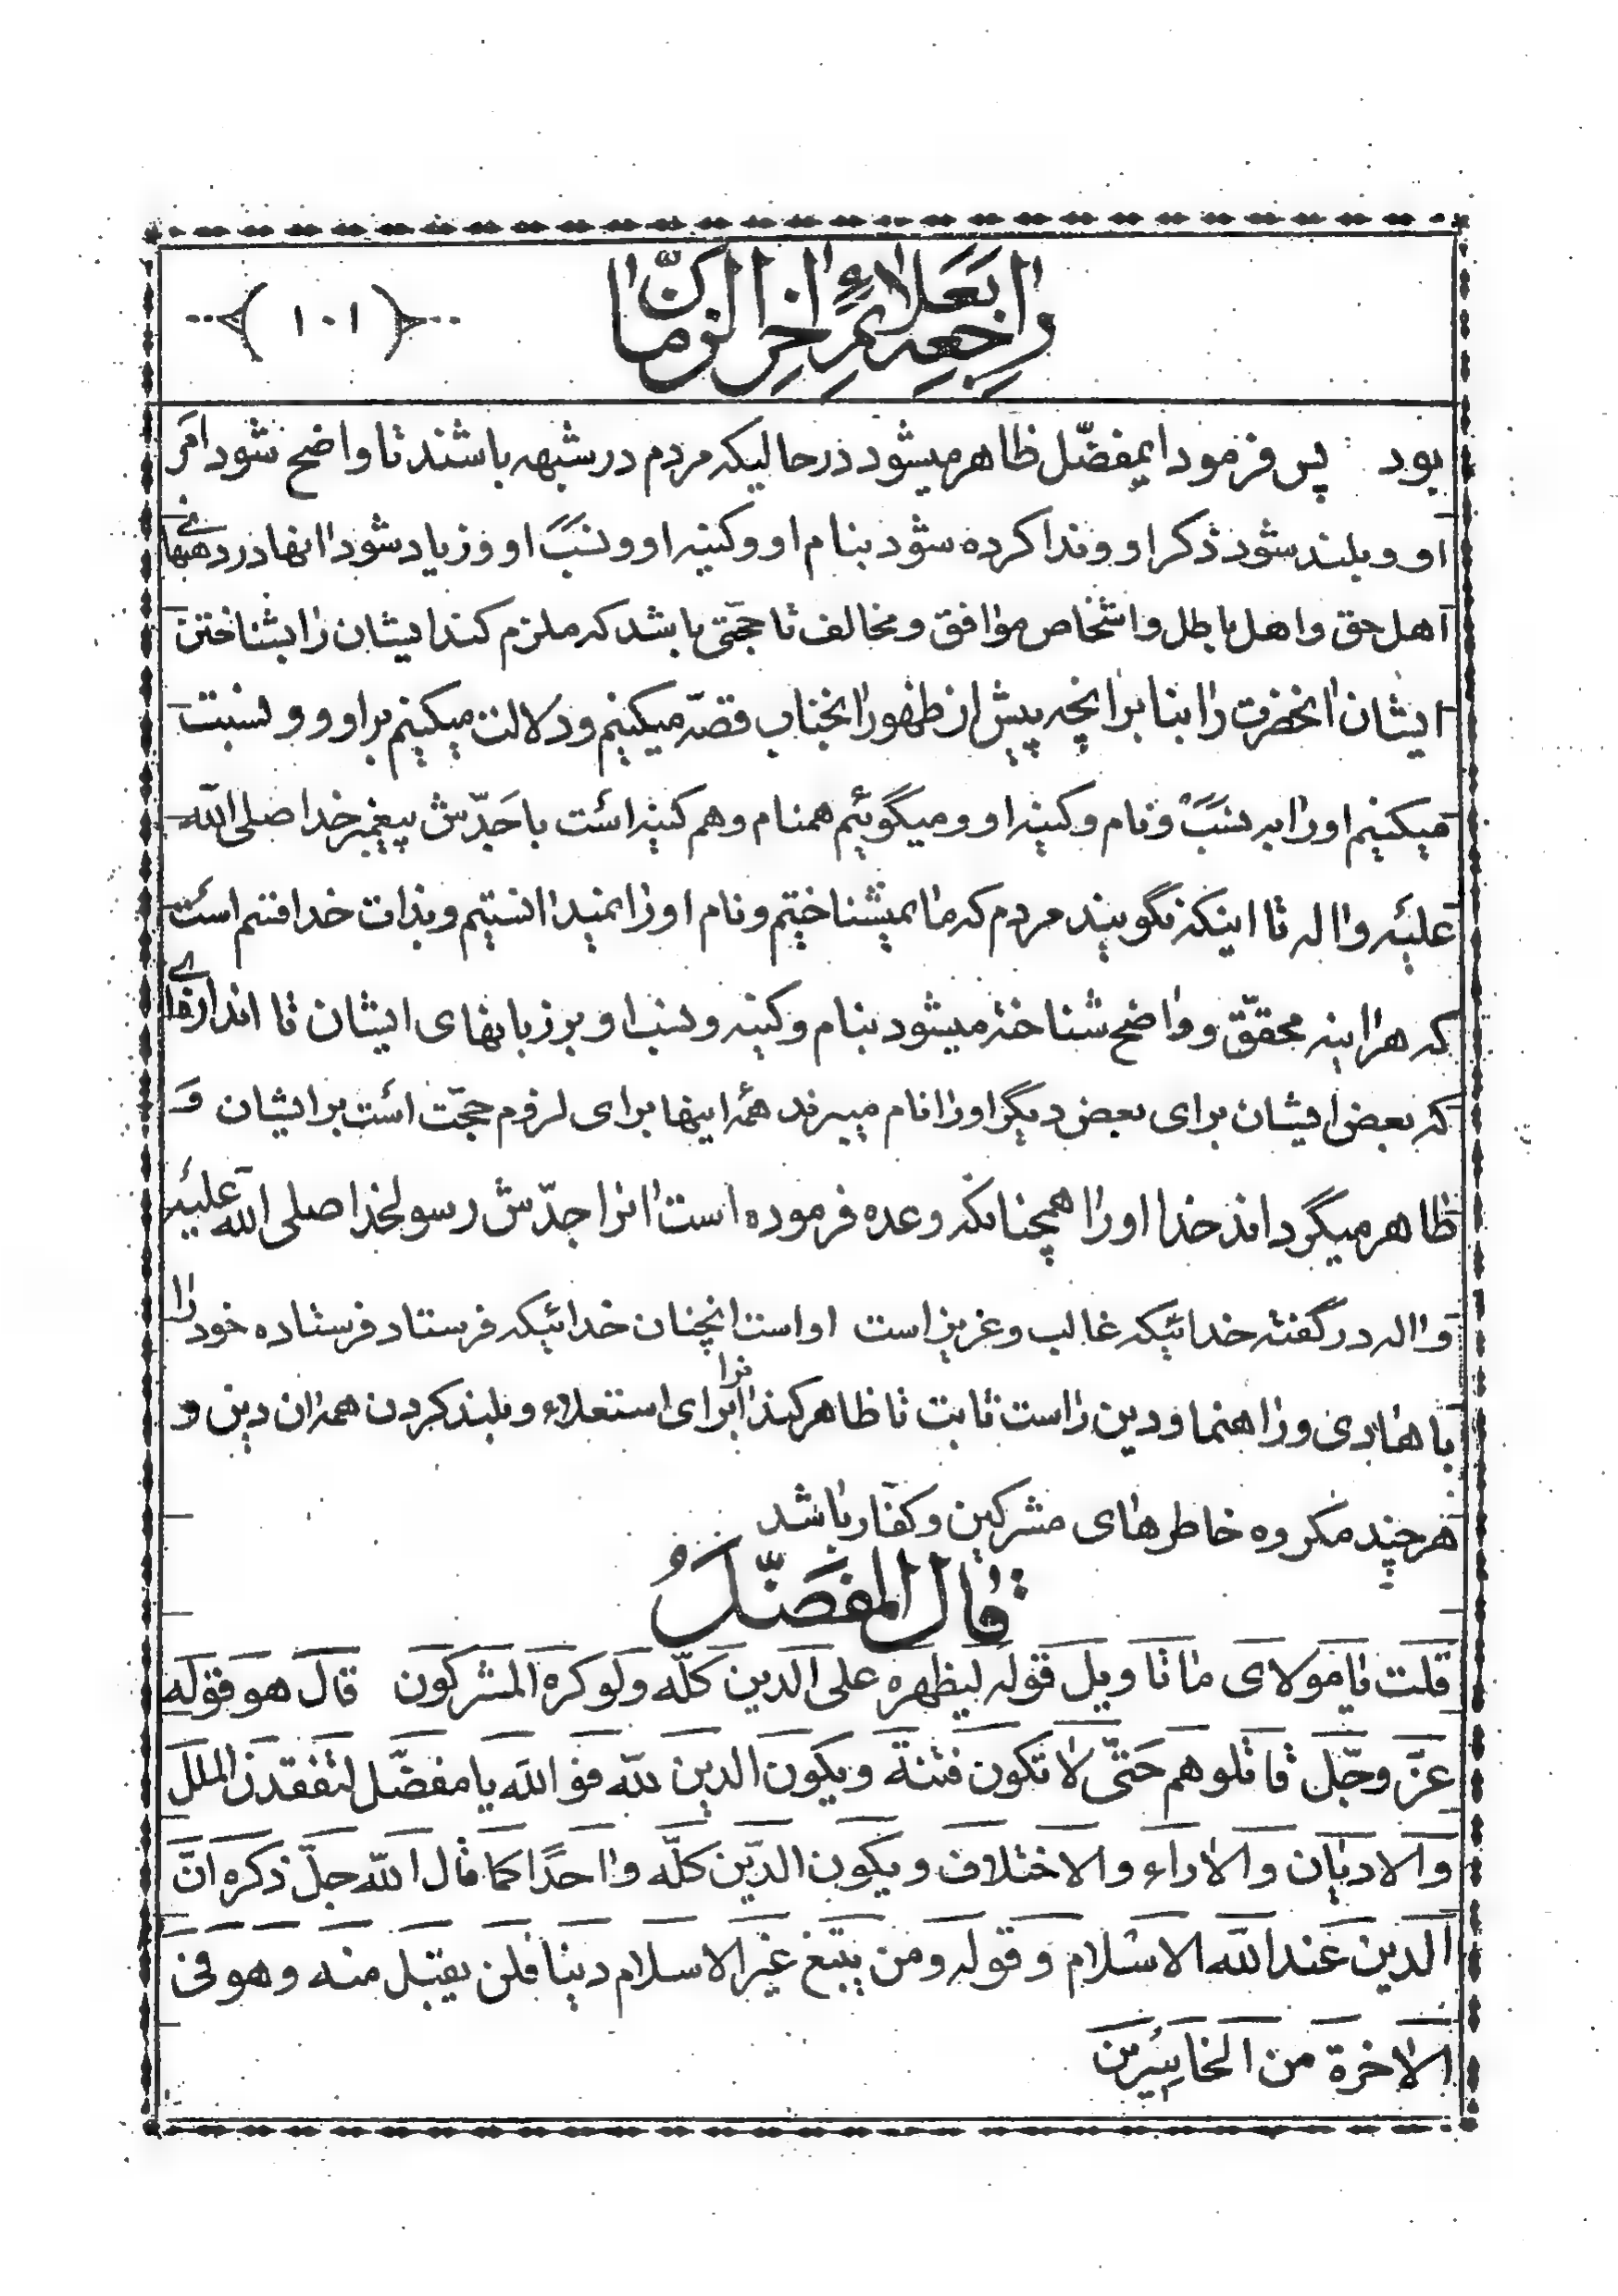 راجعه بعلائم اخرالزمان
( ۱۰۱ )
بود پس فرمود ایمفضّل ظاهر میشود در حالیکه مردم در شبهه باشند تا واضح شود امر
او و بلند شود ذکر او و ندا کرده شود بنام او و کنیه او و نسب او و زیاد شود انها در دهنهای
اهل حق و اهل باطل و اشخاص موافق و مخالف تا حجّتی باشد که ملزم کند ایشان را بشناختن
ایشان انحضرت را بنا بر انچه پیش از ظهور انجناب قصّه میکنیم و دلالت میکنیم بر او و و نسبت
میکنیم او را به نسب و نام و کنیه او و میگوئیم همنام و هم کنیه است با جدّش پیغمبر خدا صلی الله
علیه و اله تا اینکه نگویند مردم که ما نمیشناختیم و نام او را نمیدانستیم و بذات خدا قسم است
که هراینه محقّق و واضح شناخته میشود بنام و کنیه و نسب او بر زبانهای ایشان تا اندازه‌ای
که بعض ایشان برای بعض دیگر او را نام میبرند همه اینها برای لزوم حجّت است بر ایشان و
ظاهر میگرداند خدا او را همچنانکه وعده فرموده است انرا جدّش رسولخدا صلی الله علیه
و اله در گفته خدائیکه غالب و عزیز است او است انچنان خدائیکه فرستاد فرستاده خود را
با هادی و راهنما و دین راست ثابت تا ظاهر کند انرا برای استعلاء و بلند کردن همه ان دین و
هرچند مکروه خاطرهای مشرکین و کفّار باشد
قال المفضّل
قلت یا مولای ما تاویل قوله لیظهره علی الدین کلّه ولو کره المشرکون قال هو قوله
عزّ وجّل قاتلوهم حتّی لا تکون فتنة ویکون الدین لله فو الله یا مفضّل لتفقدنّ الملل
والادیان والاراء والاختلاف ویکون الدّین کلّه واحدًا کما قال الله جلّ ذکره انّ
الدین عند الله الاسلام وقوله ومن یبتغ غیر الاسلام دینا فلن یقبل منه وهو فی
الاخرة من الخاسِرین